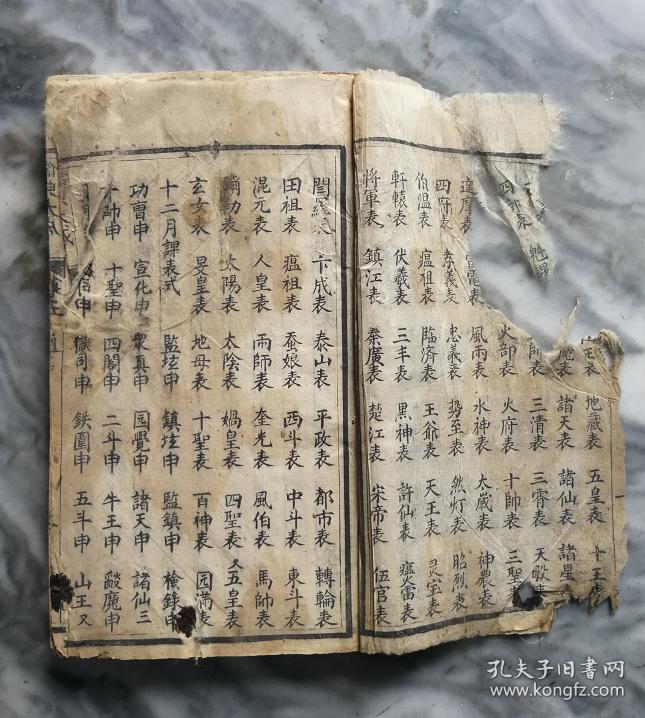 地藏表 五皇表 十王
諸天表 諸仙表 諸星
三清表 三霄表 天
火部表 火府表 十師表 三聖
風雨表 水神表 太歲表 神農表
忠義表 势至表 然灯表 昭烈表
四府表 孝義表 臨済表 王爺表 天王表 灵宝表
伯温表 瘟祖表
軒轅表 伏羲表 三丰表 黑神表 許仙表
將軍表 鎮江表 秦廣表 楚江表 宋帝表 伍官表
閻羅 卞成表 泰山表 平政表 都市表 轉輪表
田祖表 瘟祖表 蚕娘表 西斗表 中斗表 東斗表
混元表 人皇表 雨師表 奎光表 風伯表 馬帥表
彌勒表 太陽表 太陰表 媧皇表 四聖表 又五皇表
玄女表 旻皇表 地母表 十聖表 百神表 园滿表
十二月課表式 監坛申 鎮坛申 監鎮申 檢錄申
功曹申 宣化申 衆真申 园覺申 諸天申 諸仙三
十帥申 十聖申 四閣申 二斗申 牛王申 燄魔申
嶽司申 鉄圍申 五斗申 山王又
孔夫子旧书网
www.kongfz.com